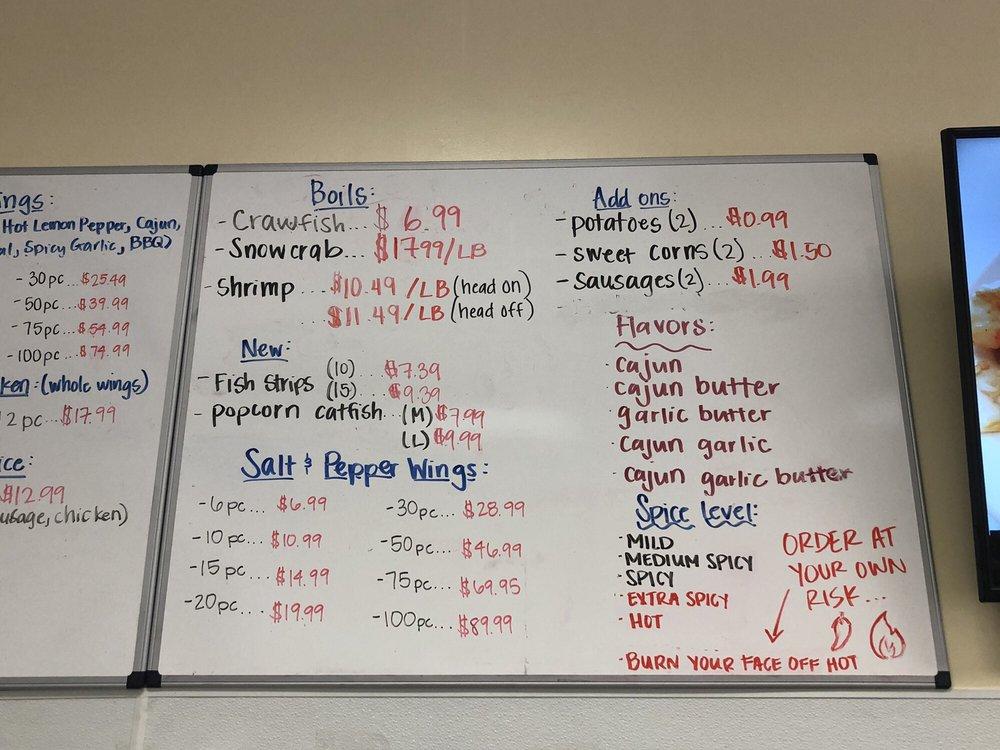 ings:
Hot Lemon Pepper, Cajun,
al, Spicy Garlic, BBQ)
- 30pc...$25.49
- 50pc...$39.99
- 75pc...$54.99
- 100pc...$74.99
ken: (whole wings)
2 pc...$17.99
ice:
$12.99
usage, chicken)
Boils:
- Crawfish... $ 6.99
- Snowcrab... $1799/LB
- Shrimp ... $10.49 /LB (head on)
... $11.49/LB (head off)
New:
- Fish Strips (10)... $7.39
(15)... $9.39
- popcorn catfish... (M) $7.99
(L) $9.99
Salt & Pepper Wings:
- 6pc... $6.99
- 10 pc... $10.99
- 15 pc... $14.99
- 20pc... $19.99
- 30pc... $28.99
- 50pc... $46.99
- 75pc... $69.95
- 100pc... $89.99
Add ons:
- potatoes (2) ... $0.99
- sweet corns (2) ... $1.50
- Sausages (2) ... $1.99
Flavors:
· cajun
· cajun butter
· garlic butter
· cajun garlic
· cajun garlic butter
Spice Level:
· MILD
· MEDIUM SPICY
· SPICY
· EXTRA SPICY
· HOT
· BURN YOUR FACE OFF HOT
ORDER AT
YOUR OWN
RISK...